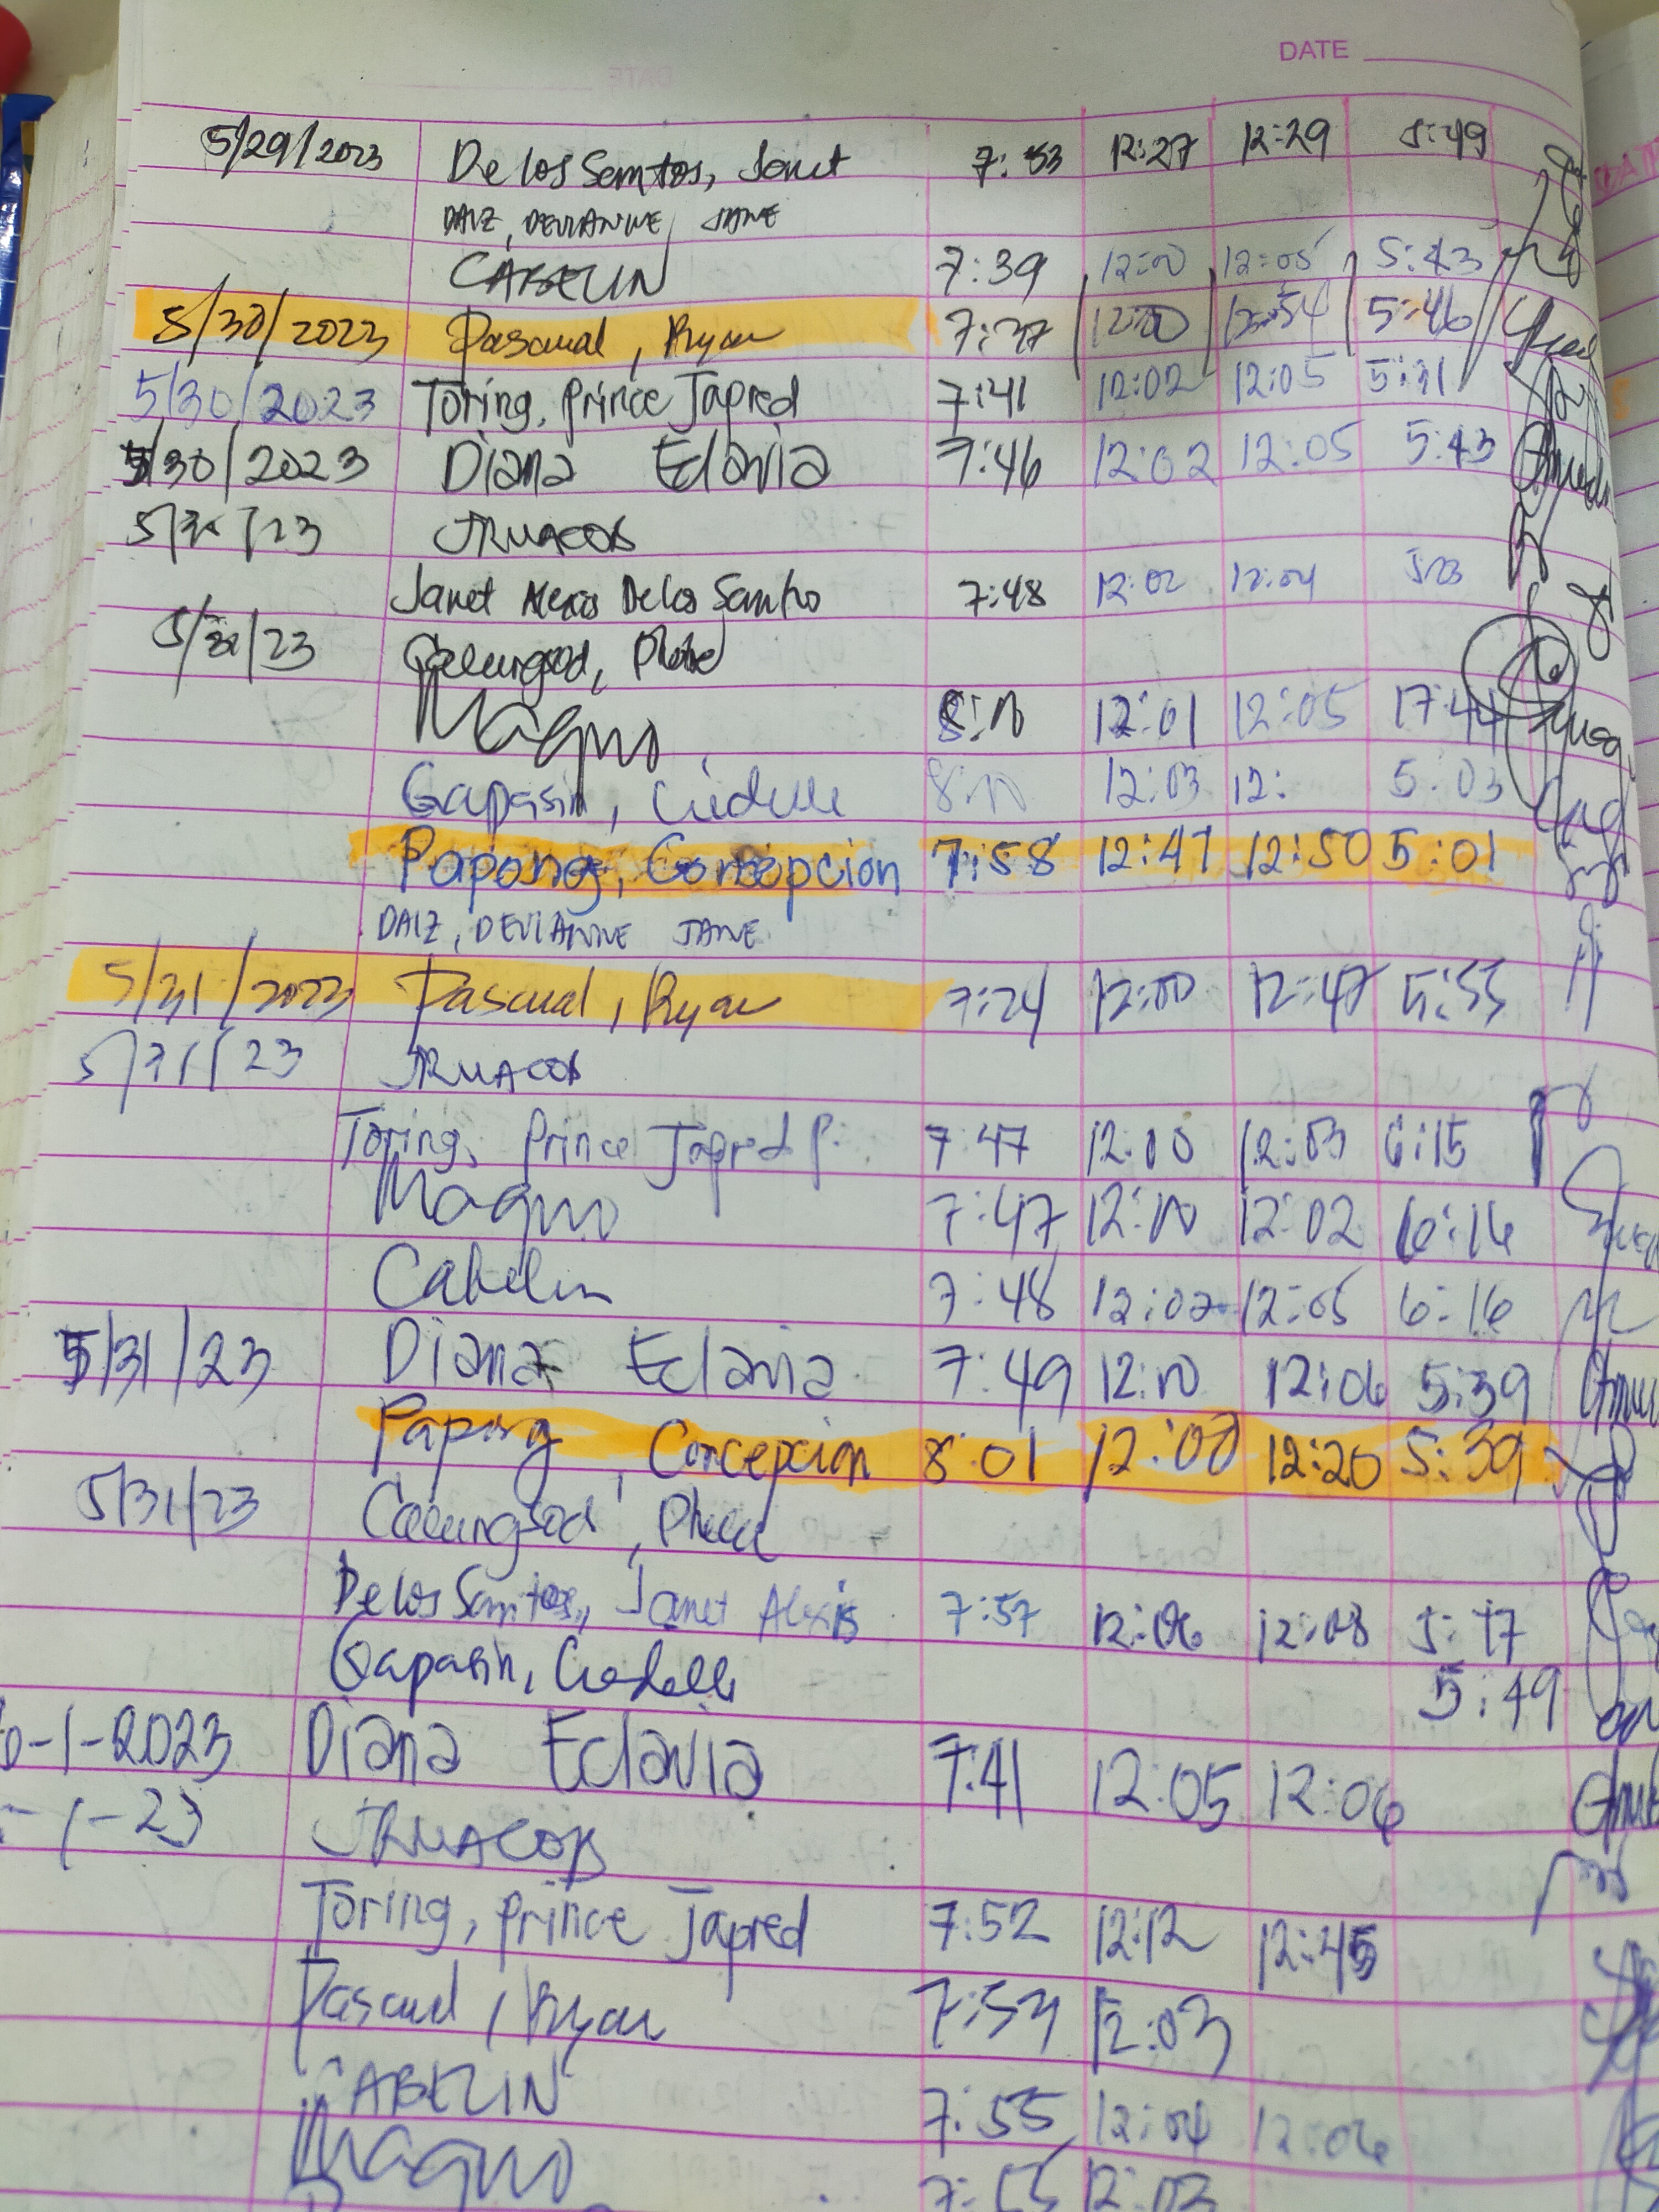 DATE
5/29/2023 De los Santos, Janet 7:53 12:27 12:29 5:49
DAIZ, DEVIANNE JANE
CABELIN 7:39 12:00 12:05 5:43
5/30/2023 Pascual, Ryan 7:37 12:00 12:54 5:46
5/30/2023 Toring, Prince Japred 7:41 12:02 12:05 5:31
5/30/2023 Diana Eclavia 7:46 12:02 12:05 5:43
JRMACOB
Janet Alexis De los Santos 7:48 12:02 12:04 5:23
Magno 12:01 12:05 17:44
Gapasin, 12:03 12: 5:03
Papong, Concepcion 7:58 12:47 12:50 5:01
DAIZ, DEVIANNE JANE
5/31/2023 Pascual, Ryan 7:24 12:00 12:47 5:55
5/31/23 JRMACOB
Toring, Prince Japred P. 7:47 12:00 12:03 6:15
Magno 7:47 12:00 12:02 6:16
Cabelin 7:48 12:02 12:05 6:16
5/31/23 Diana Eclavia 7:49 12:00 12:06 5:39
Papong, Concepcion 8:01 12:00 12:20 5:39
5/31/23
De los Santos, Janet Alexis 7:57 12:06 12:08 5:17
Gapasin, 5:49
6-1-2023 Diana Eclavia 7:41 12:05 12:06
-1-23 JRMACOB
Toring, Prince Japred 7:52 12:12 12:45
Pascual, Ryan 12:03
CABELIN 7:55 12:04 12:06
Magno 12:03